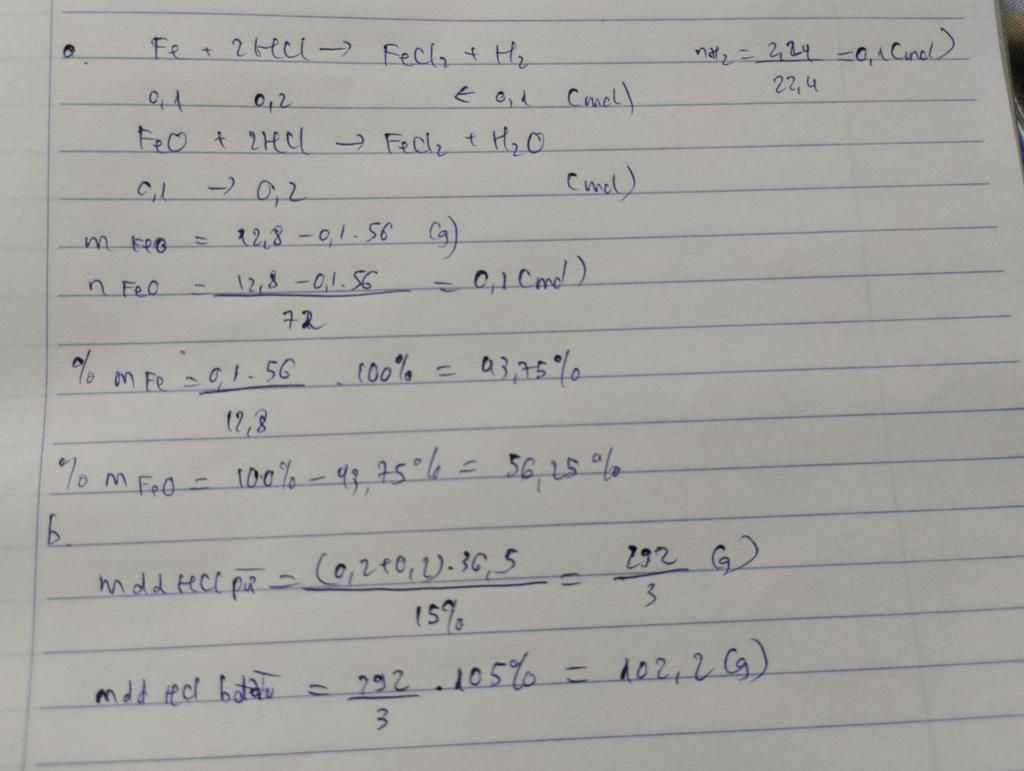 a. Fe + 2HCl → FeCl₂ + H₂ nH₂ = 2,24/22,4 = 0,1 (mol)
0,1 0,2 ← 0,1 (mol)
FeO + 2HCl → FeCl₂ + H₂O
0,1 → 0,2 (mol)
m FeO = 12,8 - 0,1.56 (g)
n FeO = (12,8 - 0,1.56)/72 = 0,1 (mol)
% m Fe = (0,1.56)/12,8 . 100% = 43,75%
% m FeO = 100% - 43,75% = 56,25%
b.
mdd HCl pứ = ((0,2+0,2).36,5)/15% = 292/3 (g)
mdd HCl = 292/3 . 105% = 102,2 (g)